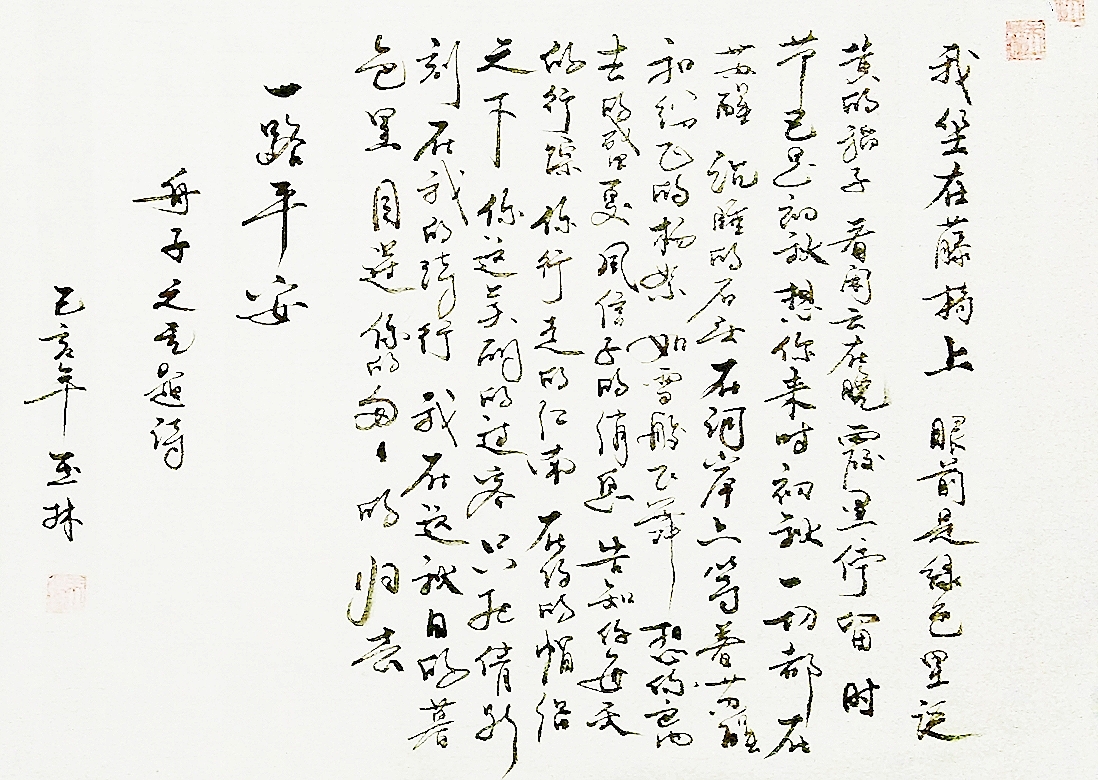 我坐在藤椅上 眼前是绿色里泛
黄的稻子 看闲云在晚霞里停留 时
节已是初秋 想你来时初秋 一切都在
苏醒 沉睡的石头 在河岸上等着苏醒
和纷飞的杨絮 如雪般飞舞 想你离
去的盛夏 风信子的消息 告知你每天
的行踪 你行走的江南 在你的帽沿
之下 你这匆匆的过客 只把倩影
刻在我的诗行 我在这秋日的暮
色里 目送你的匆匆的归去
一路平安
舟子之 题诗
己亥年 玉林